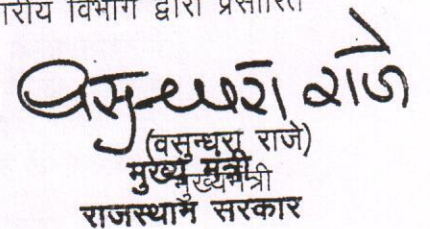 विभाग द्वारा प्रसारित
वसुन्धरा राजे
(वसुन्धरा राजे)
मुख्य मंत्री
मुख्यमंत्री
राजस्थान सरकार